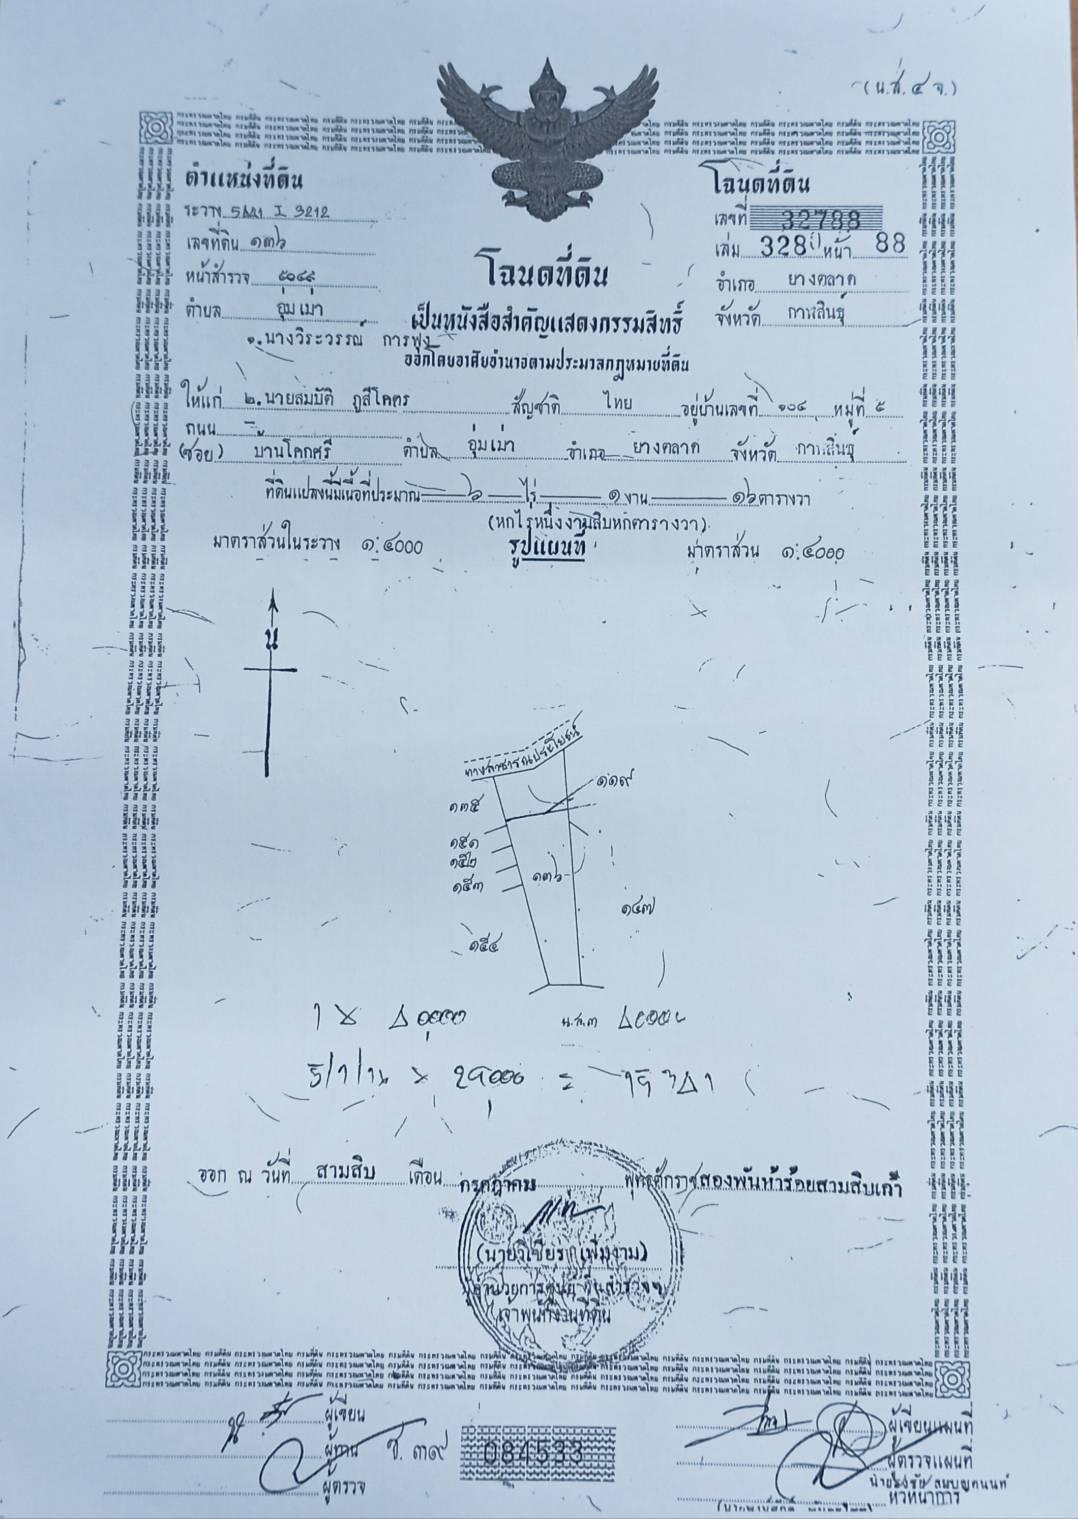 (น.ส.๔ จ.)
ตำแหน่งที่ดิน
ระวาง 5641 I 3212
เลขที่ดิน ๑๓๖
หน้าสำรวจ
ตำบล อุ่มเม่า
โฉนดที่ดิน
เลขที่ 32788
เล่ม 328 หน้า 88
อำเภอ ยางตลาด
จังหวัด กาฬสินธุ์
โฉนดที่ดิน
เป็นหนังสือสำคัญแสดงกรรมสิทธิ์
ออกโดยอาศัยอำนาจตามประมวลกฎหมายที่ดิน
๑.นางวิระวรรณ์ การฟุ้ง
ให้แก่ ๒.นายสมบัติ ภูสีโคตร สัญชาติ ไทย อยู่บ้านเลขที่ ๑๐๔ หมู่ที่ ๕
ถนน –
(ซอย) บ้านโคกศรี ตำบล อุ่มเม่า อำเภอ ยางตลาด จังหวัด กาฬสินธุ์
ที่ดินแปลงนี้มีเนื้อที่ประมาณ ๖ ไร่ ๑ งาน ๑๖ ตารางวา
(หกไร่หนึ่งงานสิบหกตารางวา)
มาตราส่วนในระวาง ๑:๔๐๐๐ รูปแผนที่ มาตราส่วน ๑:๔๐๐๐
น
ทางสาธารณประโยชน์
๑๑๙
๑๓๕
๑๕๑
๑๕๒
๑๕๓
๑๓๖
๑๔๗
๑๕๔
น.ส.๓
ออก ณ วันที่ สามสิบ เดือน กรกฎาคม พุทธศักราช สองพันห้าร้อยสามสิบเก้า
(นายวิเชียร เพิ่มงาม)
เจ้าพนักงานที่ดิน
ผู้เขียน
ผู้ทาน
ผู้ตรวจ
ช. ๓๙
084533
ผู้เขียนแผนที่
ผู้ตรวจแผนที่
หัวหน้าการ